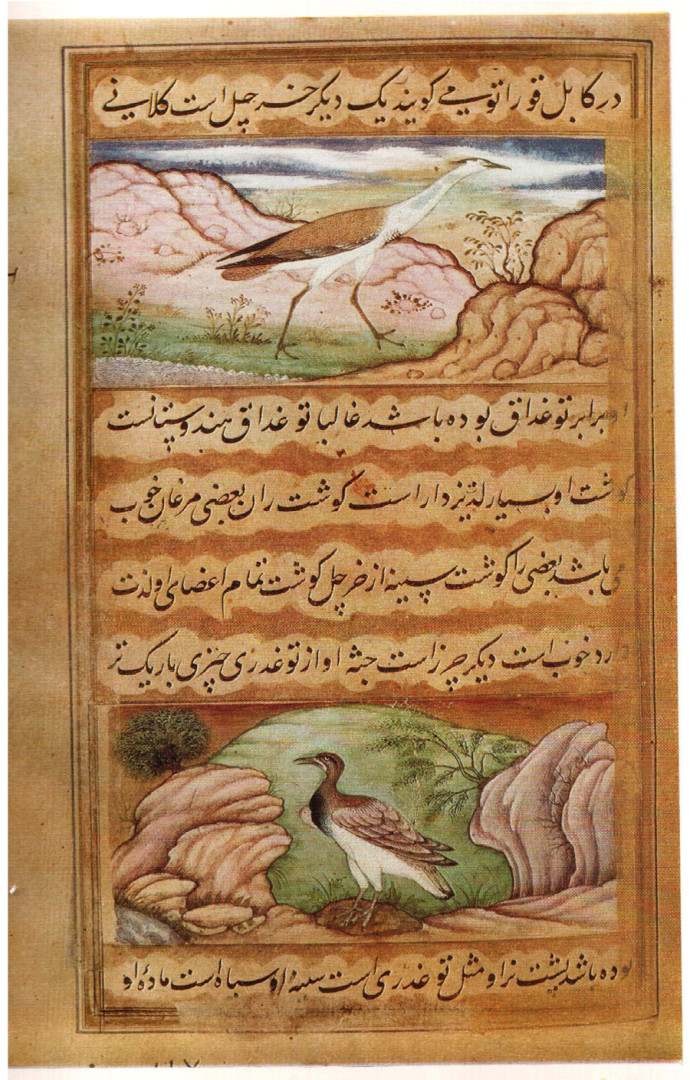 در کابل قوراتو می کویند یک دیکر خرچل است کلانی
برابر توغداق بوده باشد غالبا توغداق هندوستانست
کوشت او بسیار لذیذ دار است کوشت ران بعضی مرغان خوب
می باشد بعضی را کوشت سینه از خرچل کوشت تمام اعضای او لذت
دارد خوب است دیکر چرز است جثه او از توغدری چیزی باریک تر
بوده باشد پشت نر او مثل توغدری است سینهٔ او سیاه است مادهٔ او